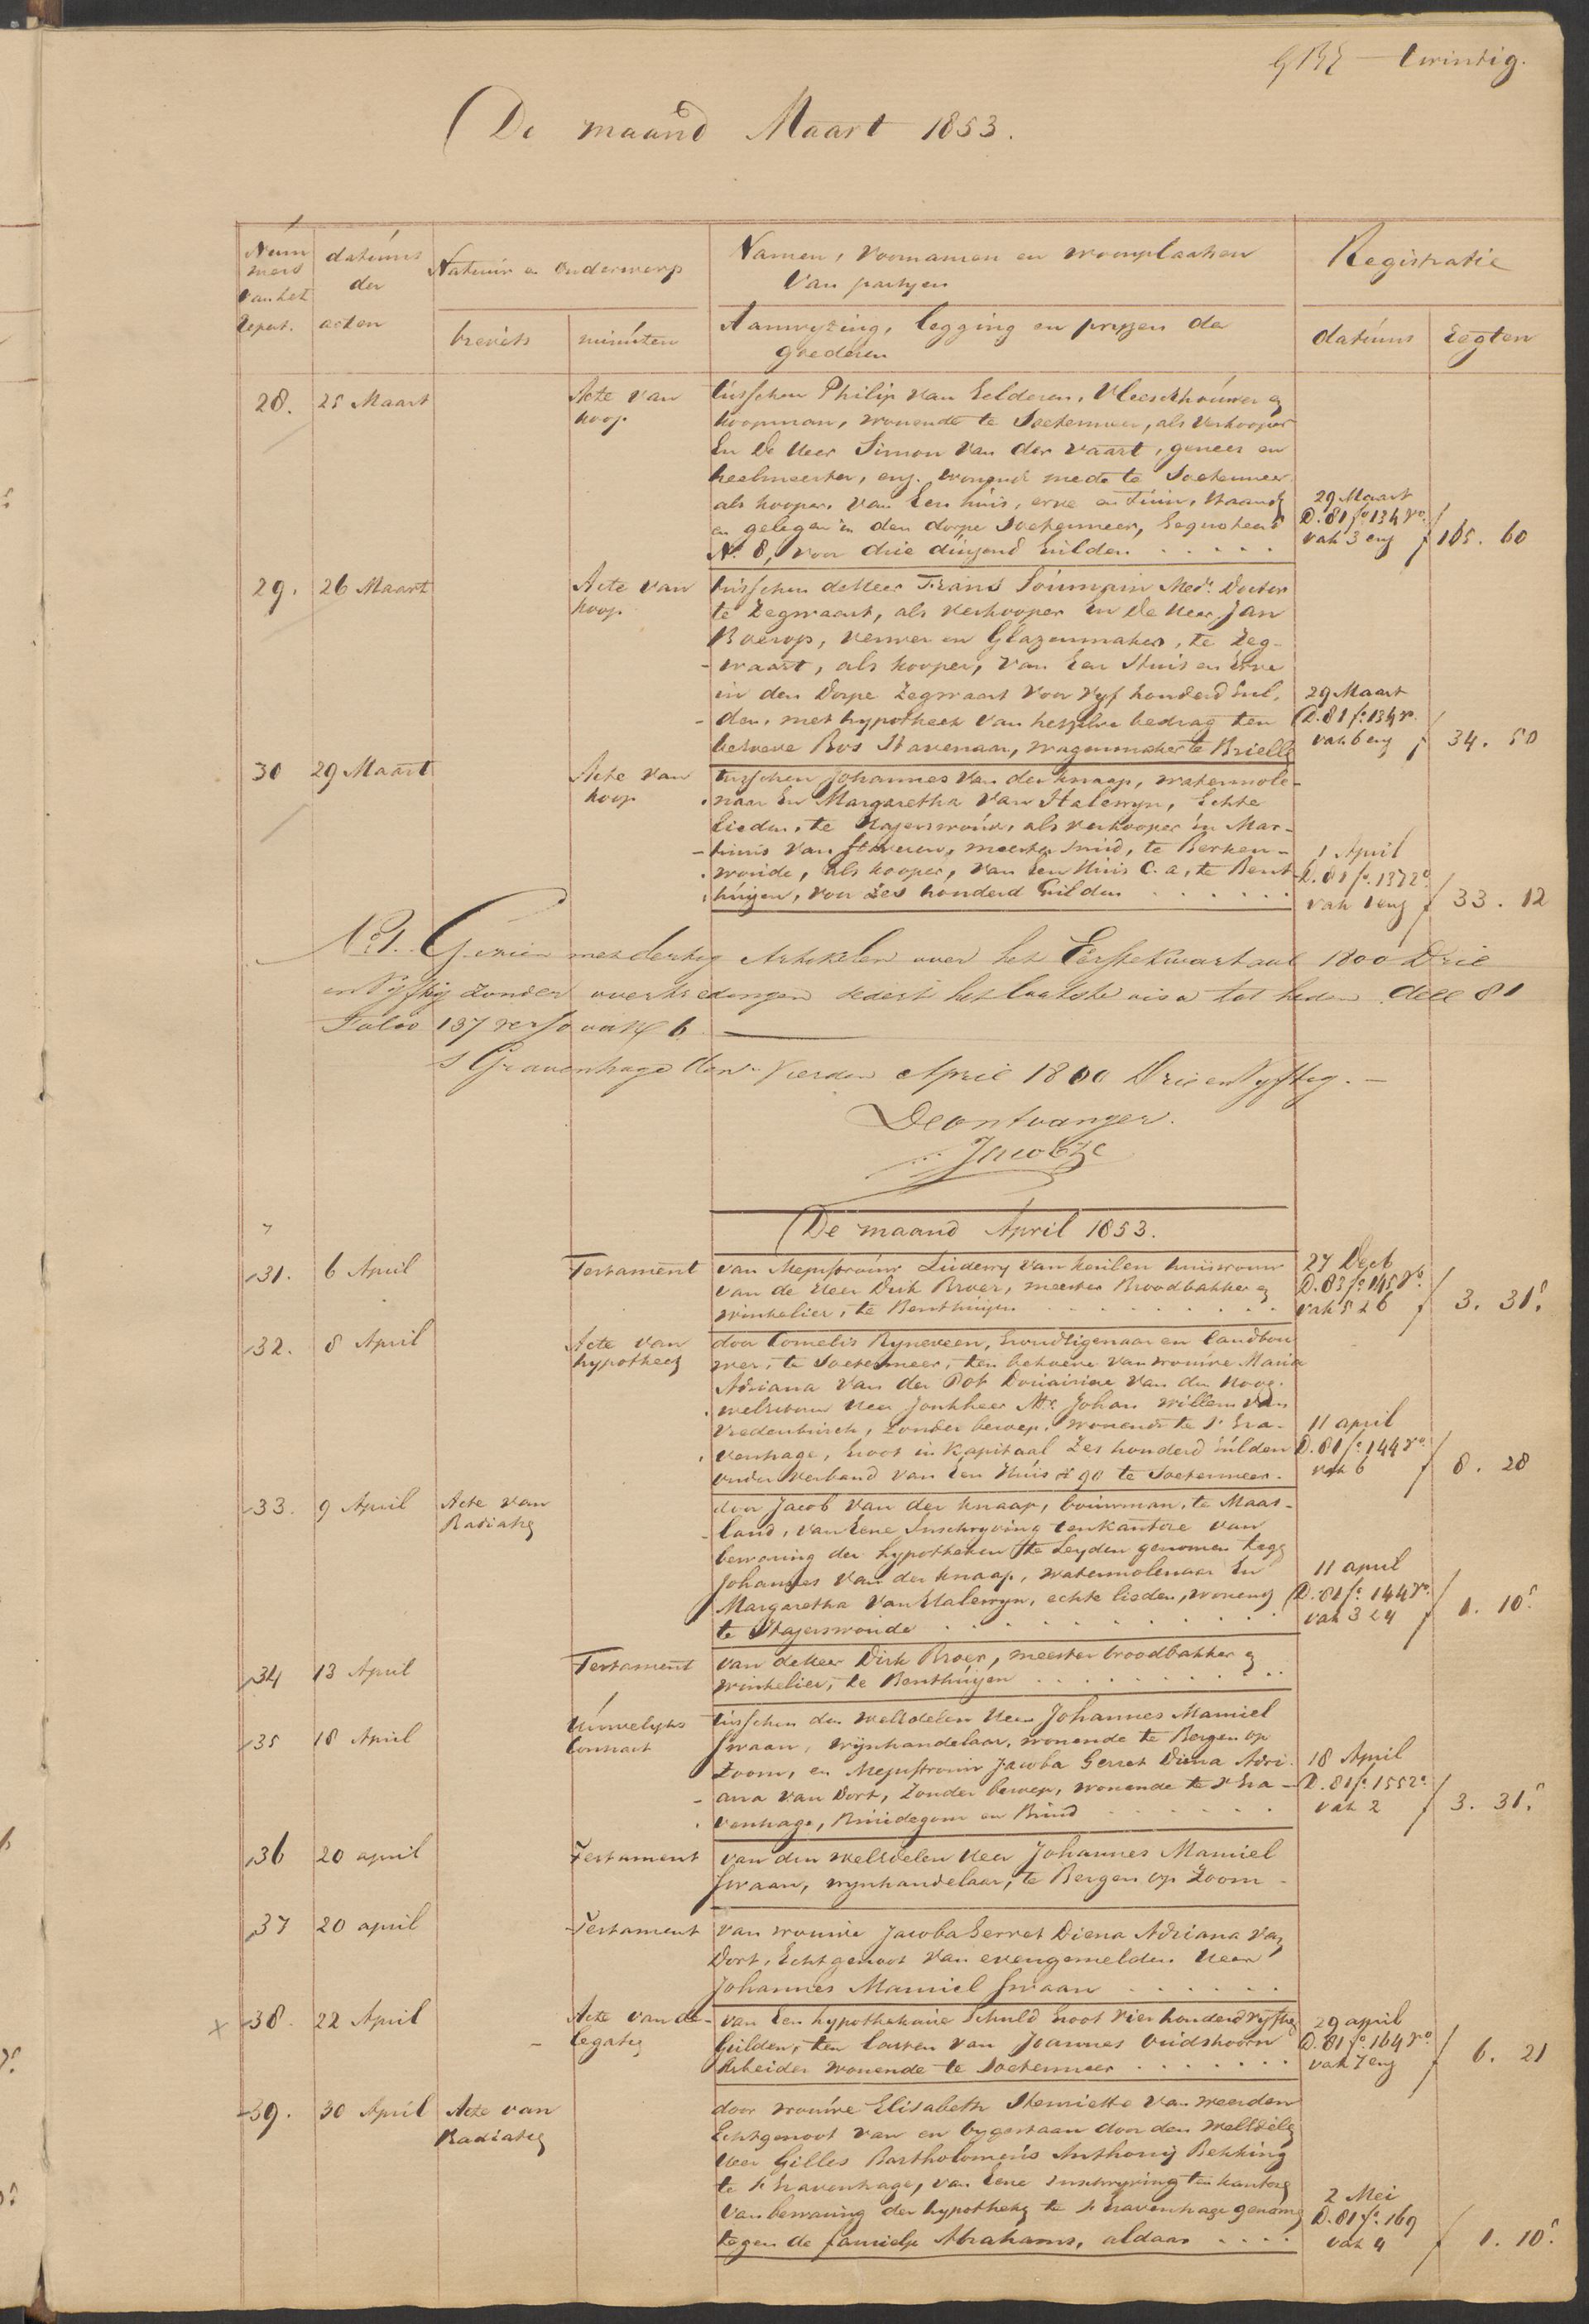 twintig.
De maand Maart 1853.
Num
mers
van het
Repert.
datums
der
acten
Natuur en Onderwerp
brevets
minuten
Namen, voornamen en woonplaatsen
van partyen
Aanwyzing, legging en pryzen der
goederen
Registratie
datums
Regten
28. 25 Maart
Acte van
koop
tusschen Philip van Gelderen, Vleeschhouwer en
koopman, wonende te Soetermeer, als verkooper
En De Heer Simon van der Vaart, genees en
heelmeester, enz. wonende mede te Soetermeer
als kooper, van Een huis, erve en Tuin, staande
en gelegen in den dorpe Soetermeer, Gequoteerd
No. 8, voor drie duizend Gulden
29 Maart
D. 81 fo. 134 ro.
vak 3 env
f 165. 60
29. 26 Maart
Acte van
koop
tusschen de Heer Frans Soumain Med. Doctor
te Zegwaart, als verkooper en De Heer Jan
Boerop, verwer en Glazenmaker, te Zeg-
waart, als kooper, van Een Huis en Erve
in den Dorpe Zegwaart voor vyf honderd Gul-
den, met hypotheek van hetzelve bedrag ten
behoeve Bos Havenaar, wagenmaker te Brielle
29 Maart
D. 81 fo. 134 r.
vak 6 env
f 34. 50
30 29 Maart
Acte van
koop
tusschen Johannes van der Knaap, watermole-
naar En Margaretha van Stalewyn, Echte
lieden, te Hazerswoude, als verkooper en Mar-
tinus van Staveren, meester smid, te Berken-
woude, als kooper, van Een Huis C. a. te Bent-
huizen, voor zes honderd Gulden
1 April
D. 81 fo. 137 2o.
vak 1 env
f 33. 12
No 1. Gezien met dertig Artikelen over het Eerste kwartaal 1800 Drie
en Vyftig zonder overtredingen sedert het laatste visa tot heden deel 81
Folio 137 verso vak 6.
s Gravenhage den Vierden April 1800 Drie en Vyftig.
De ontvanger.
De maand April 1853.
31. 6 April
Testament
van Mejufvrouw Ludewy van Keulen huisvrouw
van de Heer Dirk Broer, meester Broodbakker en
winkelier, te Benthuizen
27 Decb
D. 83 fo. 145 ro.
vak 5 2 6
f 3. 31.
32. 8 April
Acte van
hypotheek
door Cornelis Ryneveen, Grondeigenaar en landbou
wer, te Soetermeer, ten behoeve van vrouwe Maria
Adriana van der Pot Douairiere van den Hoog
welgeboren Heer Jonkheer Mr. Johan Willem van
Vredenburch, zonder beroep, wonende te s' Gra-
venhage, Groot in kapitaal zes honderd Gulden
onder verband van Een Huis No 90 te Soetermeer.
11 april
D. 81 fo. 144 ro.
vak 6
f 8. 28
33. 9 April
Acte van
Radiatie
door Jacob van der Knaap, bouwman, te Maas-
land, van Eene Inschryving ten Kantore van
bewaring der hypotheken te Leyden genomen tegen
Johannes van der Knaap, watermolenaar En
Margaretha van Stalewyn, echte lieden, wonende
te Hazerswoude
11 april
D. 81 fo. 144 ro.
vak 3 2 4
f 1. 10
34 13 April
Testament
van de Heer Dirk Broer, meester broodbakker en
winkelier, te Benthuizen
35 18 April
Huwelyks
Contract
tusschen den weledelen Heer Johannes Manuel
Swaan, wijnhandelaar, wonende te Bergen op
Zoom, en Mejufvrouw Jacoba Gerret Diena Adri-
ana van Dort, zonder beroep, wonende te s' Gra-
venhage, Bruidegom en Bruid
18 April
D. 81 fo. 155 2o.
vak 2
f 3. 31.
36 20 april
Testament
van den weledelen Heer Johannes Manuel
Swaan, wynhandelaar, te Bergen op Zoom
37 20 april
Testament
van vrouwe Jacoba Gerret Diena Adriana van
Dort, Echtgenoot van evengemelden Heer
Johannes Manuel Swaan
x 38. 22 April
Acte van de-
legatie
van Een hypothekaire Schuld Groot vier honderd vyftig
Gulden, ten lasten van Joannes Oudshoorn
Arbeider wonende te Soetermeer
29 april
D. 81 fo. 164 ro.
vak 7 env
f 6. 21
39. 30 April
Acte van
Radiatie
door vrouwe Elisabeth Henriette van Weerden
Echtgenoot van en bygestaan door den Weledele
Heer Gilles Bartholomeus Anthonij Bekking
te s' Gravenhage, van Eene Inschryving ten kantore
van bewaring der hypotheken te s' Gravenhage genomen
tegen de familje Abrahams, aldaar
2 Mei
D. 81 fo. 169
vak 4
f 1. 10.